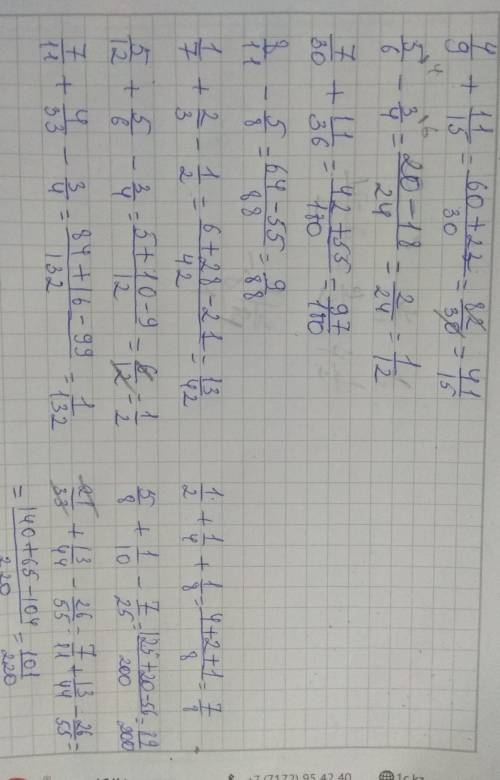 4/9 + 11/15 = 60+22/30 = 82/30 = 41/15
5/6 - 3/4 = 20-18/24 = 2/24 = 1/12
7/30 + 11/36 = 42+55/180 = 97/180
8/11 - 5/8 = 64-55/88 = 9/88
1/7 + 2/3 - 1/2 = 6+28-21/42 = 13/42
5/12 + 5/6 - 3/4 = 5+10-9/12 = 6/12 = 1/2
7/11 + 4/33 - 3/4 = 84+16-99/132 = 1/132
1/2 + 1/4 + 1/8 = 4+2+1/8 = 7/8
5/8 + 1/10 - 7/25 = 125+20-56/200 = 89/200
21/33 + 13/44 - 26/55 = 7/11 + 13/44 - 26/55 =
= 140+65-104/220 = 101/220
+7 (7172) 95 42 40